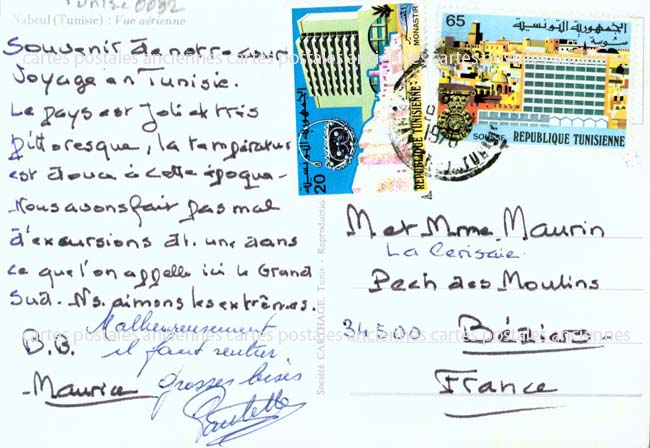 Tunisie 0092
Nabeul (Tunisie) : Vue aérienne
Souvenir de notre court
voyage en Tunisie.
Le pays est joli et très
pittoresque, la température
est douce à cette époque -
Nous avons fait pas mal
d'excursions dt. une dans
ce que l'on appelle ici le Grand
Sud. Ns. aimons les extrêmes.
Malheureusement
B.B. il faut rentrer
- Maurice grosses bises
Paulette
Société CARTHAGE, Tunis - Reproduction
20
الجمهورية التونسية
REPUBLIQUE TUNISIENNE
MONASTIR
65
الجمهورية التونسية
سوسة
SOUSSE
REPUBLIQUE TUNISIENNE
M et Mme Maurin
La Cerisaie
Pech des Moulins
34500 Béziers
France
cartes postales anciennes cartes postales anciennes cartes postales anciennes
cartes postales anciennes cartes postales anciennes cartes postales anciennes